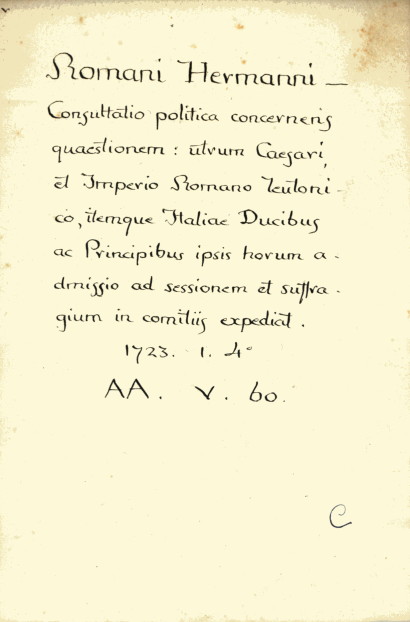 Romani Hermanni —
Consultatio politica concernens
quaestionem : utrum Caesari,
et Imperio Romano Teutoni -
co, itemque Italiae Ducibus
ac Principibus ipsis horum a -
dmissio ad sessionem et suffra -
gium in comitiis expediat .
1723. 1. 4°
AA. V. 60.
C